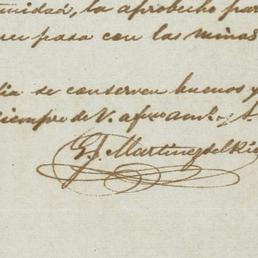 unidad, la aprobecho par
pasa con las minas
lia se conserven buenos y
siempre de V. afmo am.º y S
Martinez del Rio